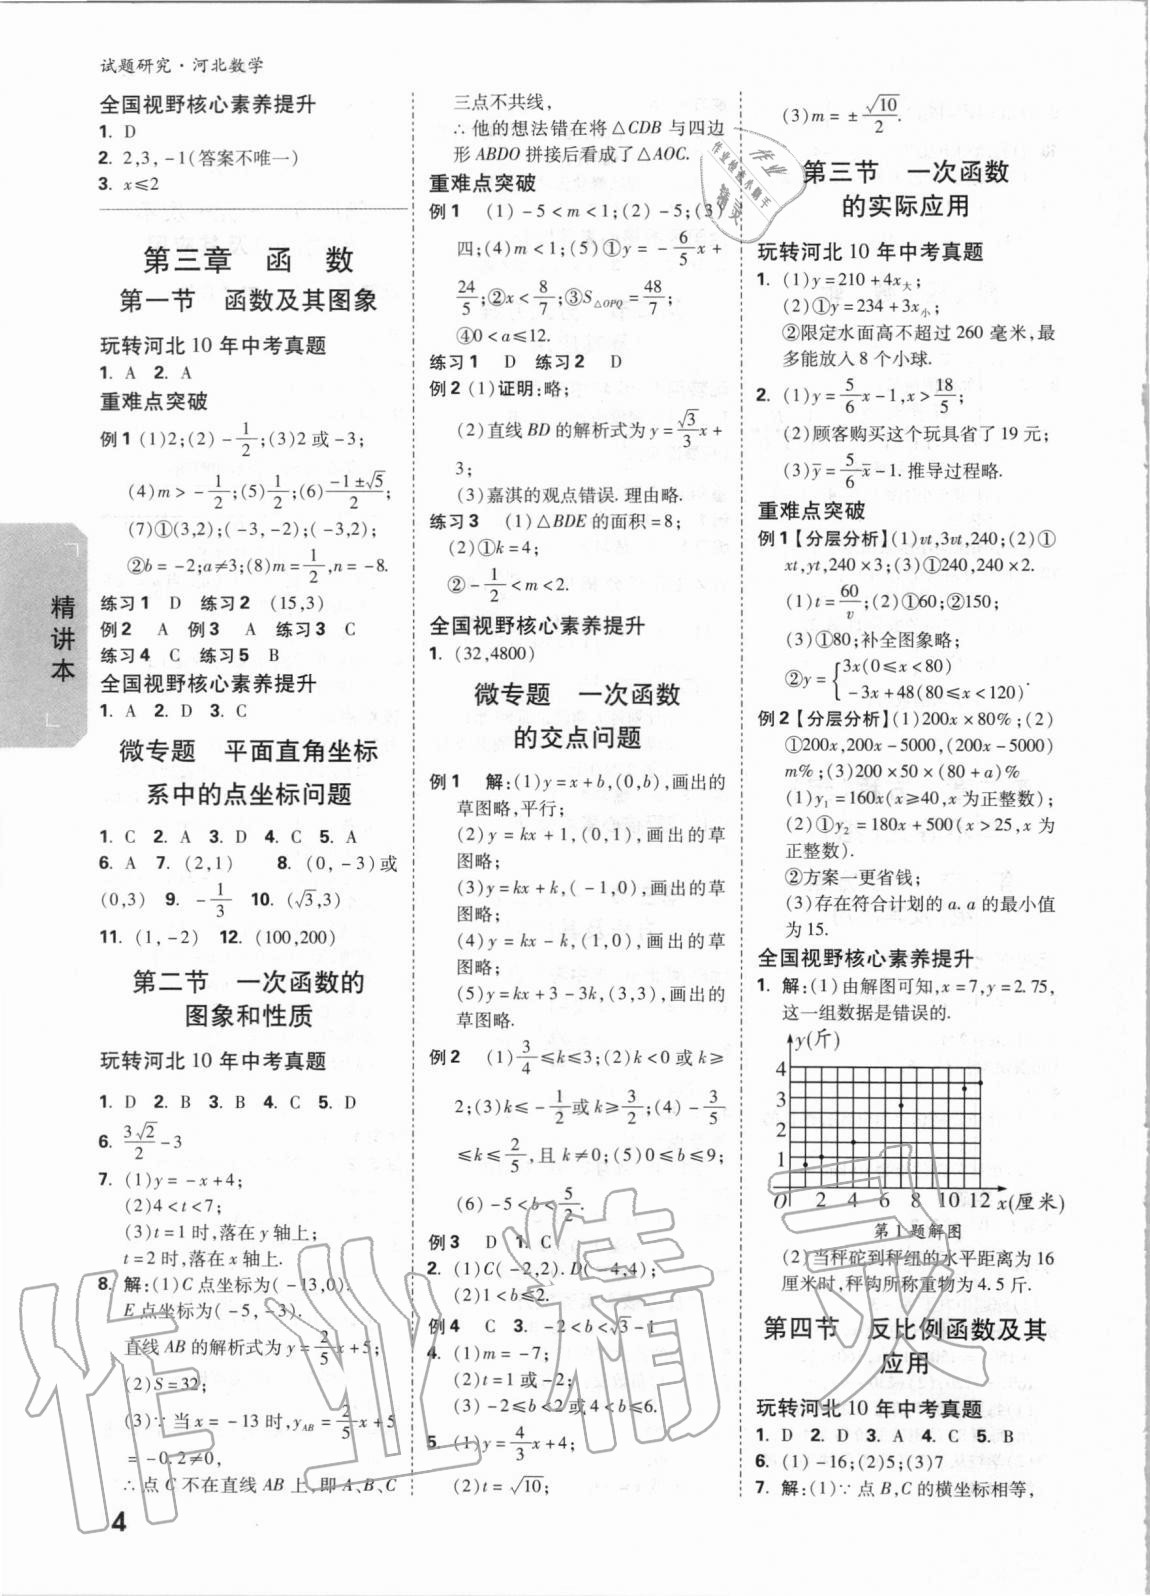 试题研究·河北数学
全国视野核心素养提升
1. D
2. 2,3,-1(答案不唯一)
3. x≤2
第三章 函 数
第一节 函数及其图象
玩转河北10年中考真题
1. A 2. A
重难点突破
例1 (1)2;(2)-1/2;(3)2或-3;
(4)m>-1/2;(5)1/2;(6)(-1±√5)/2;
(7)①(3,2);(-3,-2);(-3,2);
②b=-2;a≠3;(8)m=1/2,n=-8.
练习1 D 练习2 (15,3)
例2 A 例3 A 练习3 C
练习4 C 练习5 B
全国视野核心素养提升
1. A 2. D 3. C
微专题 平面直角坐标
系中的点坐标问题
1. C 2. A 3. D 4. C 5. A
6. A 7. (2,1) 8. (0,-3)或
(0,3) 9. -1/3 10. (√3,3)
11. (1,-2) 12. (100,200)
第二节 一次函数的
图象和性质
玩转河北10年中考真题
1. D 2. B 3. B 4. C 5. D
6. 3√2/2-3
7. (1)y=-x+4;
(2)4<t<7;
(3)t=1时,落在y轴上;
t=2时,落在x轴上.
8. 解:(1)C点坐标为(-13,0).
E点坐标为(-5,-3).
直线AB的解析式为y=2/5x+5;
(2)S=32;
(3)∵当x=-13时,y_AB=2/5x+5
=-0.2≠0,
∴点C不在直线AB上,即A、B、C
4
精讲本
三点不共线,
∴他的想法错在将△CDB与四边
形ABDO拼接后看成了△AOC.
重难点突破
例1 (1)-5<m<1;(2)-5;(3)
四;(4)m<1;(5)①y=-6/5x+
24/5;②x<8/7;③S△OPQ=48/7;
④0<a≤12.
练习1 D 练习2 D
例2 (1)证明:略;
(2)直线BD的解析式为y=√3/3x+
3;
(3)嘉淇的观点错误.理由略.
练习3 (1)△BDE的面积=8;
(2)①k=4;
②-1/2<m<2.
全国视野核心素养提升
1. (32,4800)
微专题 一次函数
的交点问题
例1 解:(1)y=x+b,(0,b),画出的
草图略,平行;
(2)y=kx+1,(0,1),画出的草
图略;
(3)y=kx+k,(-1,0),画出的草
图略;
(4)y=kx-k,(1,0),画出的草
图略;
(5)y=kx+3-3k,(3,3),画出的
草图略.
例2 (1)3/4≤k≤3;(2)k<0或k≥
2;(3)k≤-1/2或k≥3/2;(4)-3/5
≤k≤2/5,且k≠0;(5)0≤b≤9;
(6)-5<b<5/2.
例3 D 1. C
2. (1)C(-2,2).D(-4,4);
(2)1<b≤2.
例4 C 3. -2<b<√3-1
4. (1)m=-7;
(2)t=1或-2;
(3)-2≤b<2或4<b≤6.
5. (1)y=4/3x+4;
(2)t=√10;
(3)m=±√10/2.
第三节 一次函数
的实际应用
玩转河北10年中考真题
1. (1)y=210+4x大;
(2)①y=234+3x小;
②限定水面高不超过260毫米,最
多能放入8个小球.
2. (1)y=5/6x-1,x>18/5;
(2)顾客购买这个玩具省了19元;
(3)y̅=5/6x̅-1.推导过程略.
重难点突破
例1【分层分析】(1)vt,3vt,240;(2)①
xt,yt,240×3;(3)①240,240×2.
(1)t=60/v;(2)①60;②150;
(3)①80;补全图象略;
②y={3x(0≤x<80)
-3x+48(80≤x<120).
例2【分层分析】(1)200x×80%;(2)
①200x,200x-5000,(200x-5000)
m%;(3)200×50×(80+a)%
(1)y₁=160x(x≥40,x为正整数);
(2)①y₂=180x+500(x>25,x为
正整数).
②方案一更省钱;
(3)存在符合计划的a.a的最小值
为15.
全国视野核心素养提升
1. 解:(1)由解图可知,x=7,y=2.75,
这一组数据是错误的.
y(斤)
4
3
2
1
O 2 4 6 8 10 12 x(厘米)
第1题解图
(2)当秤砣到秤纽的水平距离为16
厘米时,秤钩所称重物为4.5斤.
第四节 反比例函数及其
应用
玩转河北10年中考真题
1. D 2. D 3. A 4. C 5. B
6. (1)-16;(2)5;(3)7
7. 解:(1)∵点B,C的横坐标相等,
作业
作业检查小助手
精灵
作业精灵